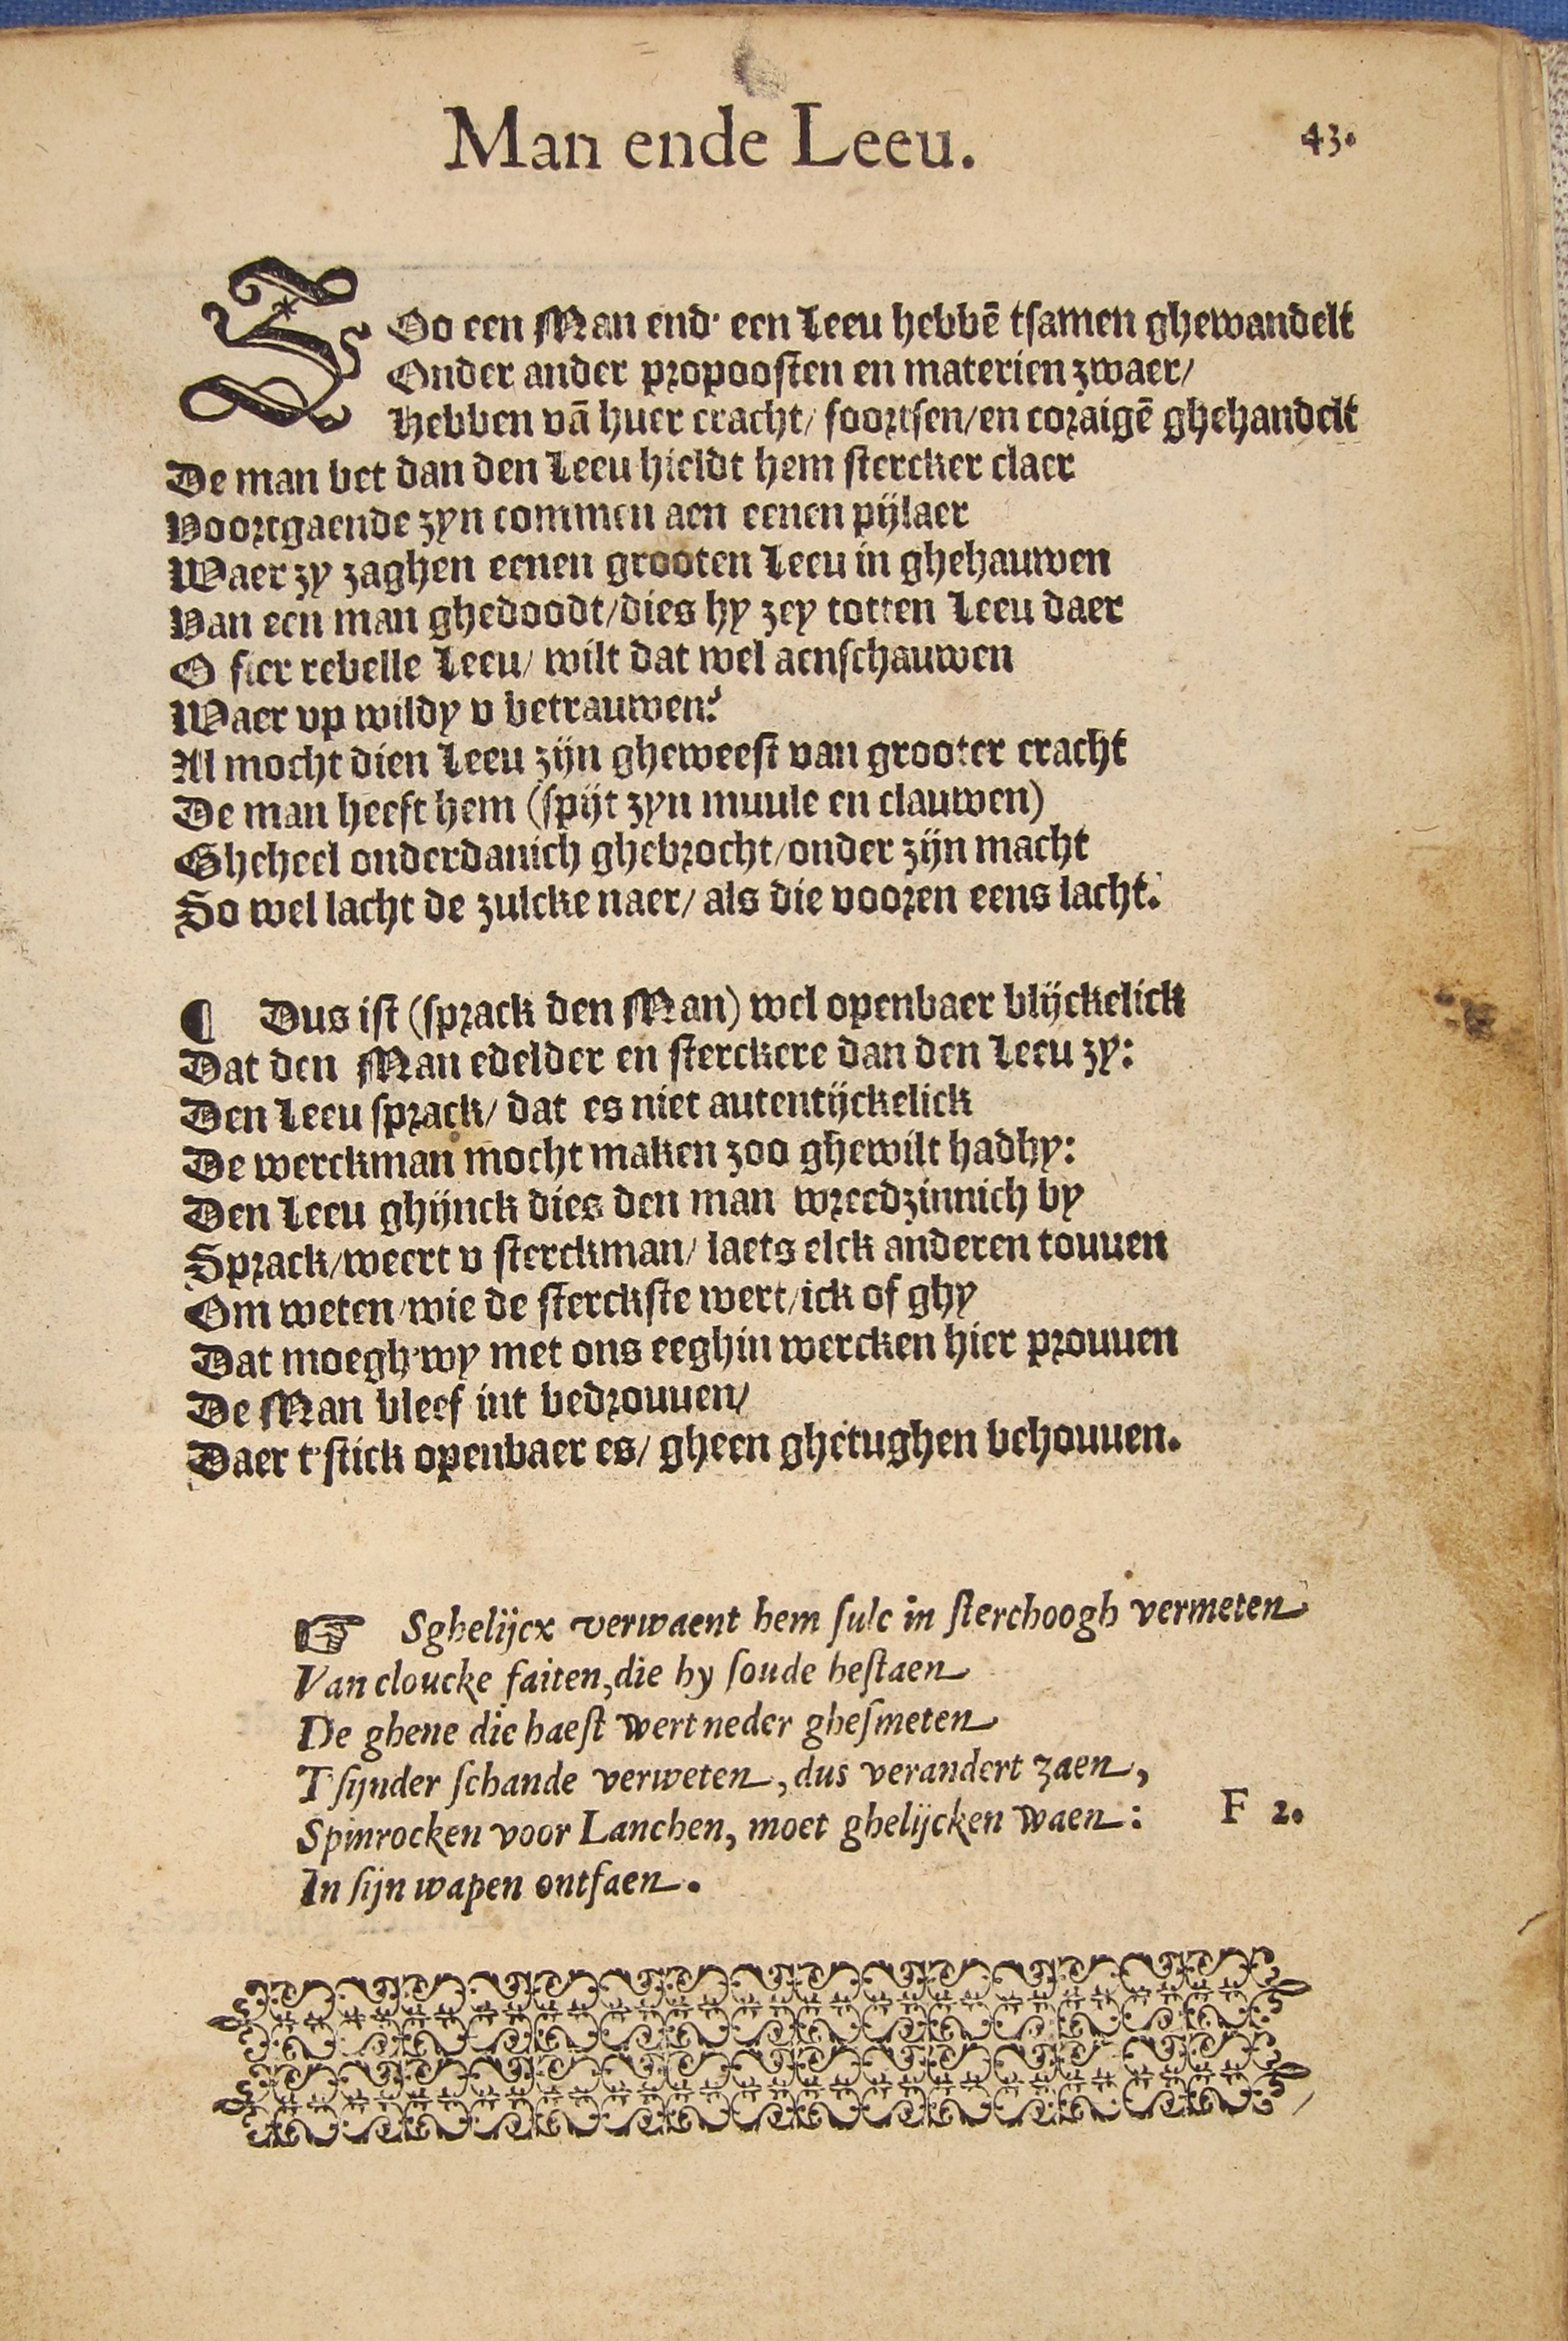 Man ende Leeu. 43.
ZOo een Man end' een Leeu hebbē tsamen ghewandelt
Onder ander propoosten en materien zwaer/
Hebben vā huer cracht/ foortsen/en coraigē ghehandelt
De man bet dan den Leeu hieldt hem stercker claer
Voortgaende zyn commen aen eenen pijlaer
Waer zy zaghen eenen grooten Leeu in ghehauwen
Van een man ghedoodt/dies hy zey totten Leeu daer
O fier rebelle Leeu/ wilt dat wel aenschauwen
Waer vp wildy v betrauwen?
Al mocht dien Leeu zijn gheweest van grooter cracht
De man heeft hem (spijt zyn muule en clauwen)
Gheheel onderdanich ghebrocht/onder zijn macht
So wel lacht de zulcke naer/ als die vooren eens lacht.
¶ Dus ist (sprack den Man) wel openbaer blijckelick
Dat den Man edelder en sterckere dan den Leeu zy:
Den Leeu sprack/ dat es niet autentijckelick
De werckman mocht maken zoo ghewilt hadhy:
Den Leeu ghijnck dies den man wreedzinnich by
Sprack/weert v sterckman/ laets elck anderen touuen
Om weten/wie de sterckste wert/ick of ghy
Dat moegh'wy met ons eeghin wercken hier prouuen
De Man bleef int bedrouuen/
Daer t'stick openbaer es/ gheen ghetughen behouuen.
☞ Sghelijcx verwaent hem sulc in sterchoogh vermeten
Van cloucke faiten,die hy soude bestaen
De ghene die haest wert neder ghesmeten
T'sijnder schande verweten, dus verandert zaen,
Spinrocken voor Lanchen, moet ghelijcken waen:
In sijn wapen ontfaen.
F 2.